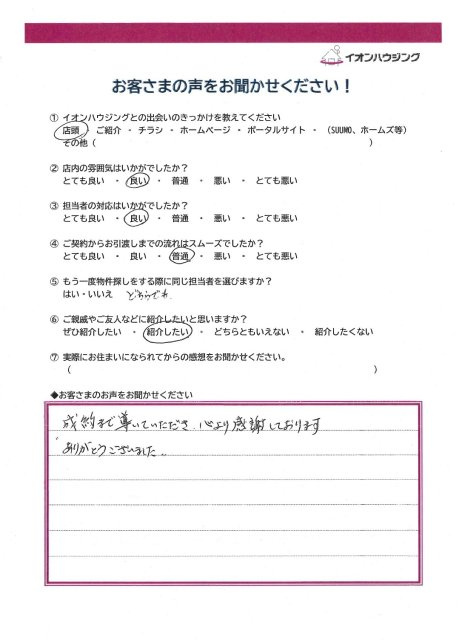 イオンハウジング
お客さまの声をお聞かせください！
① イオンハウジングとの出会いのきっかけを教えてください
店頭 ・ ご紹介 ・ チラシ ・ ホームページ ・ ポータルサイト ・ （SUUMO、ホームズ等）
その他（ ）
② 店内の雰囲気はいかがでしたか？
とても良い ・ 良い ・ 普通 ・ 悪い ・ とても悪い
③ 担当者の対応はいかがでしたか？
とても良い ・ 良い ・ 普通 ・ 悪い ・ とても悪い
④ ご契約からお引渡しまでの流れはスムーズでしたか？
とても良い ・ 良い ・ 普通 ・ 悪い ・ とても悪い
⑤ もう一度物件探しをする際に同じ担当者を選びますか？
はい・いいえ どちらでも
⑥ ご親戚やご友人などに紹介したいと思いますか？
ぜひ紹介したい ・ 紹介したい ・ どちらともいえない ・ 紹介したくない
⑦ 実際にお住まいになられてからの感想をお聞かせください。
（ ）
◆お客さまのお声をお聞かせください
成約まで導いていただき 心より感謝しております
ありがとうございました。